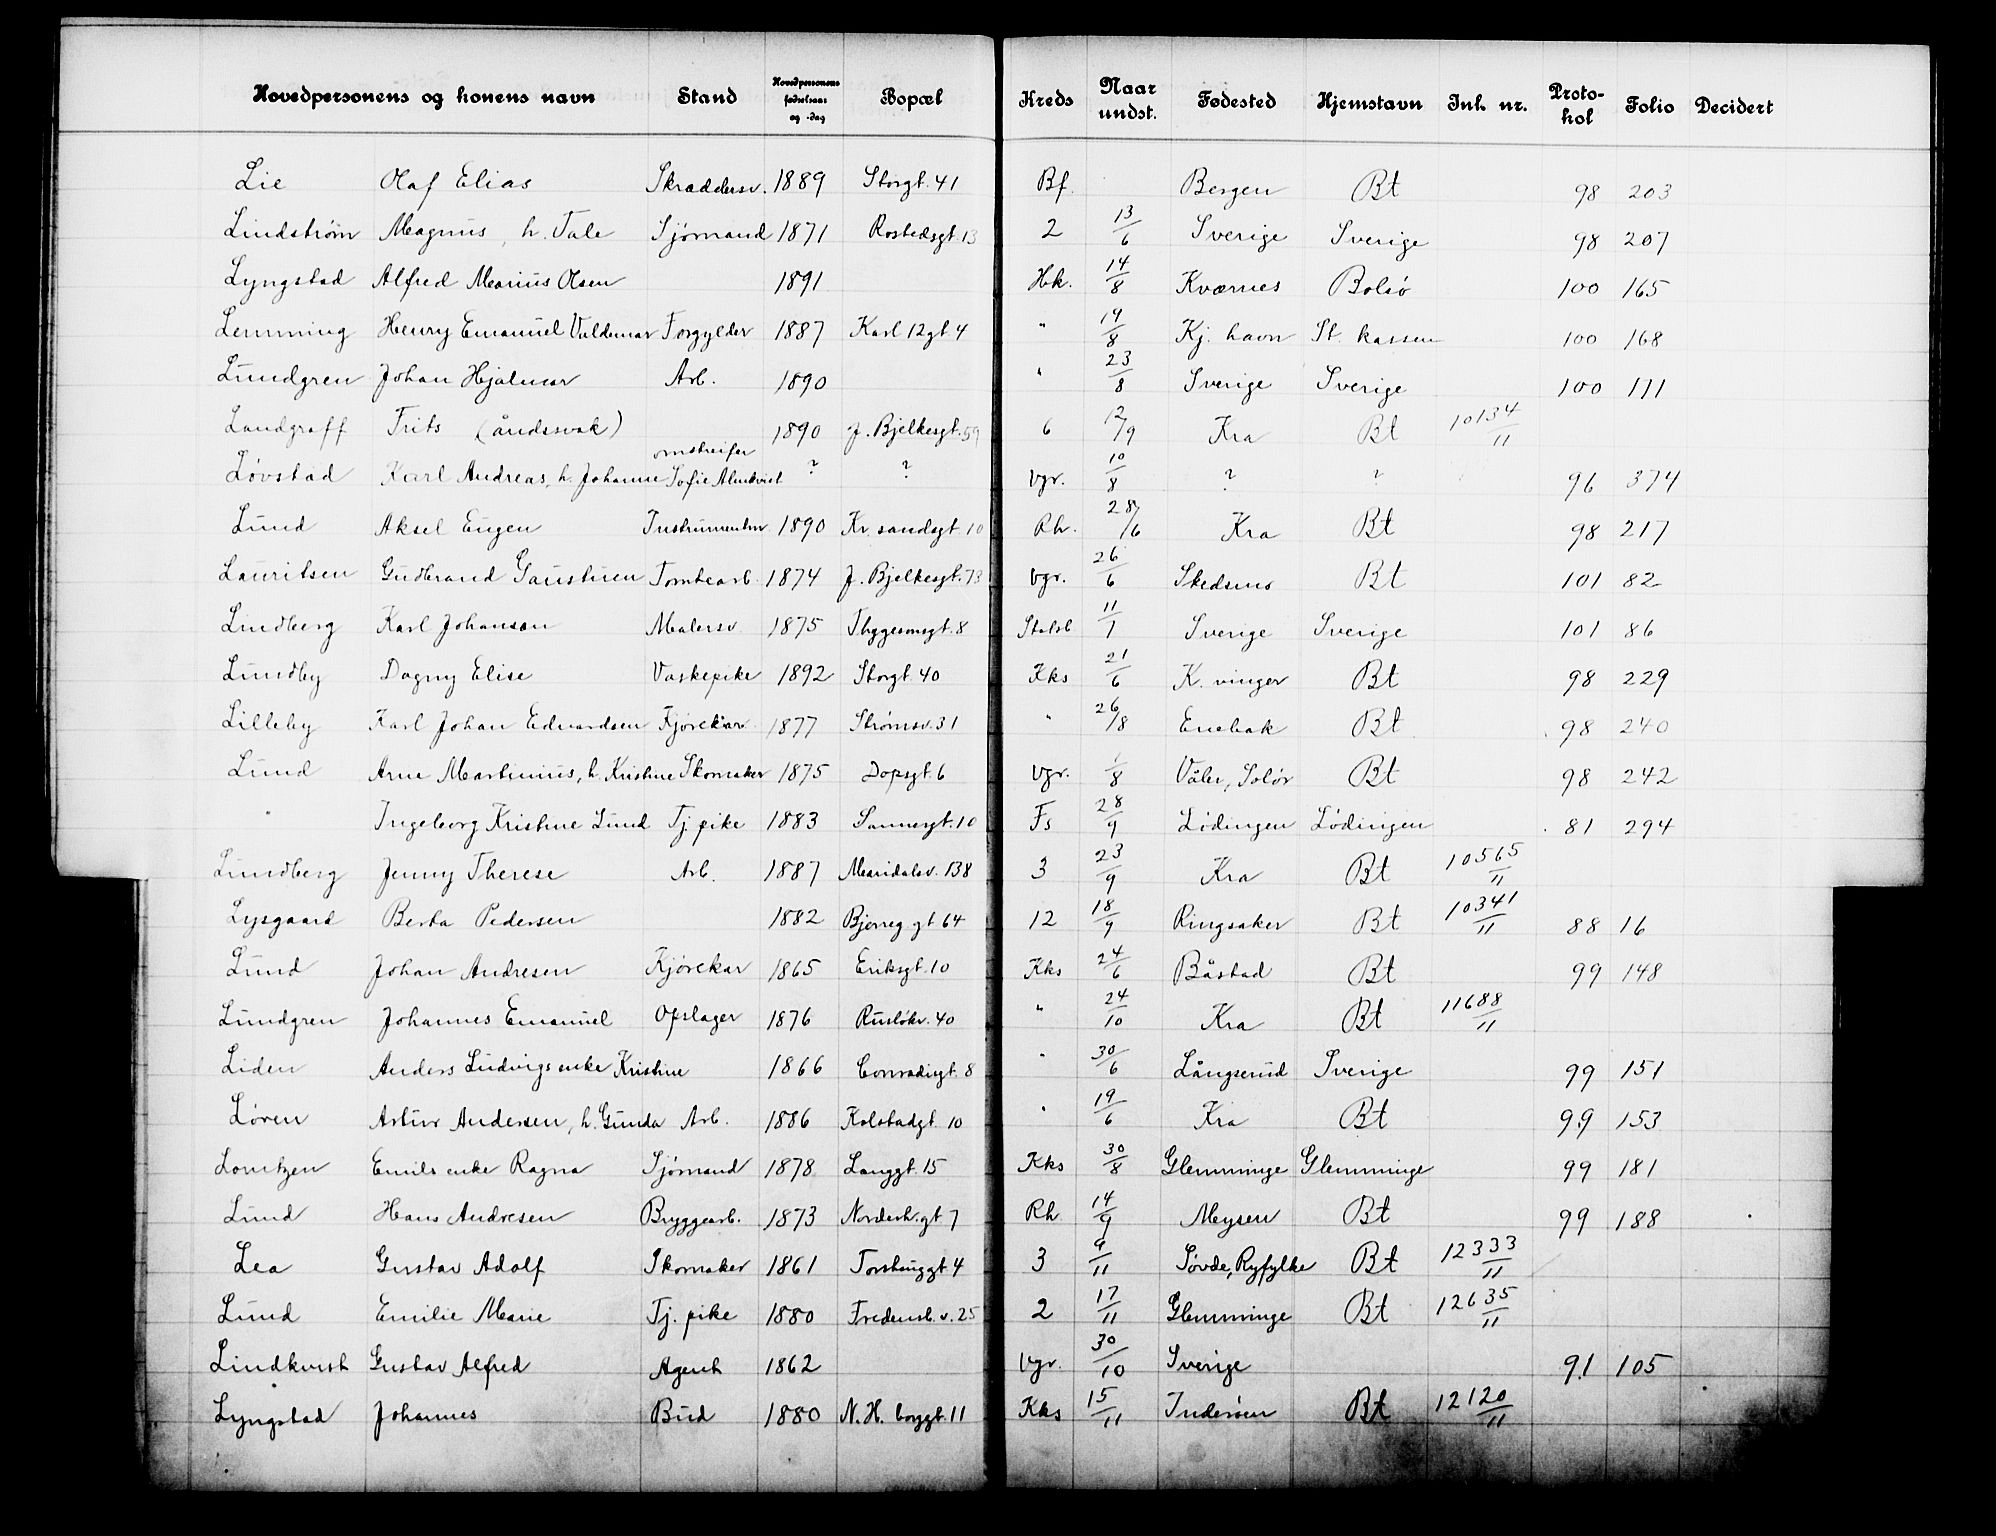 Hovedpersonens og konens navn Stand Hovedpersonens fødselsaar og -dag Bopæl Kreds Naar undst. Fødested Hjemstavn Inh. nr. Protokol Folio Decidert
Lie Olaf Elias Skræddersv. 1889 Storgt. 41 Bf. Bergen Bt 98 203
Lindstrøm Magnus, h. Tale Sjømand 1871 Rostedsgt. 13 2 13/6 Sverige Sverige 98 207
Lyngstad Alfred Marius Olsen 1891 Hk. 14/8 Kværnes Bolsø 100 165
Lemming Henry Emanuel Valdemar Forgylder 1887 Karl 12gt 4 " 19/8 Kj.havn St. kassen 100 168
Lundgren Johan Hjalmar Arb. 1890 " 23/8 Sverige Sverige 100 171
Landgraff Frits (åndssvak) 1890 J. Bjelkesgt. 59 6 12/9 Kra Bt 10134/11
Løvstad Karl Andreas, h. Johanne Sofie Almkvist omstreifer ? ? Vgr. 10/8 ? ? 96 374
Lund Aksel Eugen Instrumentm. 1890 Kr.sandsgt. 10 Rh. 28/6 Kra Bt 98 217
Lauritsen Gudbrand Gaustuen Tomtearb. 1874 J. Bjelkesgt. 73 Vgr. 26/6 Skedsmo Bt 101 82
Lindberg Karl Johanson Malersv. 1875 Thygesonsgt. 8 11/7 Sverige Sverige 101 86
Lundby Dagny Elise Vaskepike 1892 Storgt. 40 Kks 21/6 K.vinger Bt 98 229
Lilleby Karl Johan Edvardsen Kjørekar 1877 Strømsv. 31 " 26/8 Enebak Bt 98 240
Lund Arne Martinius, h. Kristine Skomaker 1875 Dopsgt. 6 Vgr. 1/8 Våler, Solør Bt 98 242
" Ingeborg Kristine Lund Tj.pike 1883 Sannergt. 10 Fs 28/9 Lødingen Lødingen 81 294
Lundberg Jenny Therese Arb. 1887 Maridalsv. 138 3 23/9 Kra Bt 10565/11
Lysgaard Berta Pedersen 1882 Bjerreg.gt 64 12 18/9 Ringsaker Bt 10341/11 88 16
Lund Johan Andresen Kjørekar 1865 Eriksgt. 10 Kks 24/6 Båstad Bt 99 148
Lundgren Johannes Emanuel Opslager 1876 Rusløkv. 40 " 24/10 Kra Bt 11688/11
Liden Anders Ludvigs enke Kristine 1866 Conradigt. 8 " 30/6 Långserud Sverige 99 151
Løren Artur Andersen, h. Gunda Arb. 1886 Kolstadgt. 10 " 19/6 Kra Bt 99 153
Lorntzen Emils enke Ragna Sjømand 1878 Langgt. 15 Kks 30/8 Glemminge Glemminge 99 181
Lund Hans Andresen Bryggearb. 1873 Norderh.gt 7 Rh. 14/9 Mysen Bt 99 188
Lea Gustav Adolf Skomaker 1861 Torshuggt 4 3 9/11 Søvde, Ryfylke Bt 12333/11
Lund Emilie Marie Tj. pike 1880 Fredensb.v. 25 2 17/11 Glemminge Bt 12635/11
Lindkvist Gustav Alfred Agent 1862 Vgr. 30/10 Sverige 91 105
Lyngstad Johannes Bud 1880 N. H. bryggt. 11 Kks 15/11 Inderøen Bt 12120/11